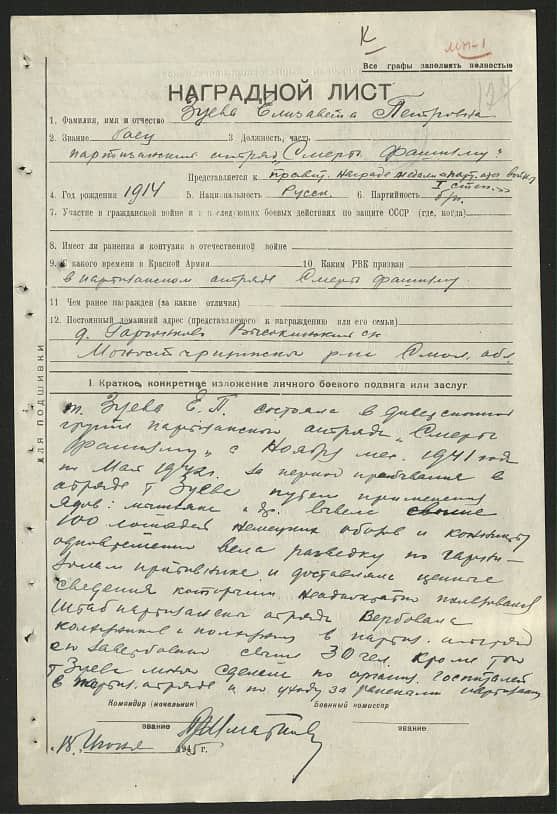 К
МП-1
Все графы заполнять полностью
174
НАГРАДНОЙ ЛИСТ
1. Фамилия, имя и отчество Зуева Елизавета Петровна
2. Звание боец 3 Должность, часть
партизанский отряд „Смерть фашизму"
Представляется к правит. награде медали парт. отеч. войны
I степ.
4. Год рождения 1914 5. Национальность Русск. 6. Партийность б/п.
7. Участие в гражданской войне и в последующих боевых действиях по защите СССР (где, когда)
8. Имеет ли ранения и контузии в отечественной войне
9. С какого времени в Красной Армии 10. Каким РВК призван
в партизанском отряде Смерть фашизму.
11 Чем ранее награжден (за какие отличия)
12. Постоянный домашний адрес (представляемого к награждению или его семьи)
д. с/с
р-на Смол. обл.
ДЛЯ ПОДШИВКИ
I. Краткое, конкретное изложение личного боевого подвига или заслуг
т. Зуева Е. П. состояла в диверсионной
группе партизанского отряда „Смерть
фашизму" с Ноября мес. 1941 года
по Май 1942г. За период пребывания в
отряде т Зуева путем применения
ядов: мышьяка и др. вывела свыше
100 лошадей немецких обозов и конницы
одновременно вела разведку по гарни-
зонам противника и доставляла ценные
сведения которыми неоднократно пользовался
Штаб партизанского отряда Вербовала
в партиз. отряд
ею завербовано свыше 30 чел. Кроме того
т Зуева много сделала по организ. госпиталей
в партиз. отряде и по уходу за ранеными партизанами
Командир (начальник) Военный комиссар
звание звание
18. Июня 1945 г.